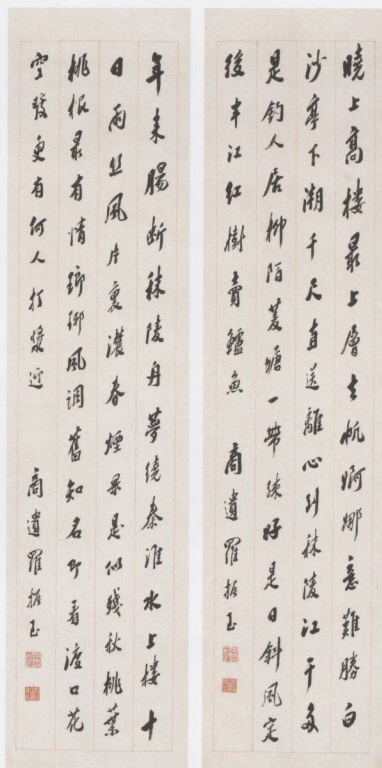 曉上高樓最上層去帆婀娜意難勝白
沙亭下潮千尺直送離心到秣陵江干多
是釣人居柳陌菱塘一帶疎好是日斜風定
後半江紅樹賣鱸魚 商遺羅振玉
年来腸斷秣陵舟夢繞秦淮水上樓十
日雨丝風片裏濃春煙景是似殘秋桃葉
桃根最有情瑯琊風調舊知名可看渡口花
空發更有何人打槳迎 商遺羅振玉